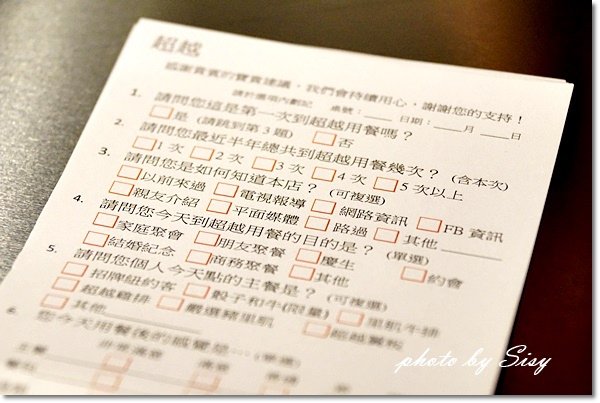 超越
感謝貴賓的寶貴建議，我們會持續用心，謝謝您的支持！
請於選項內劃記 桌號：___ 日期：___月___日
1. 請問您這是第一次到超越用餐嗎？
□是（請跳到第 3 題） □否
2. 請問您最近半年總共到超越用餐幾次？（含本次）
□1 次 □2 次 □3 次 □4 次 □5 次以上
3. 請問您是如何知道本店？（可複選）
□以前來過 □電視報導 □網路資訊 □FB 資訊
□親友介紹 □平面媒體 □路過 □其他______
4. 請問您今天到超越用餐的目的是？（單選）
□家庭聚會 □朋友聚餐 □慶生 □約會
□結婚紀念 □商務聚餐 □其他______
5. 請問您個人今天點的主餐是？（可複選）
□招牌紐約客 □骰子和牛(限量) □里肌牛排
□超越雞排 □嚴選豬里肌 □超越
□其他______
6. 您今天用餐後的感覺是…
photo by Sisy